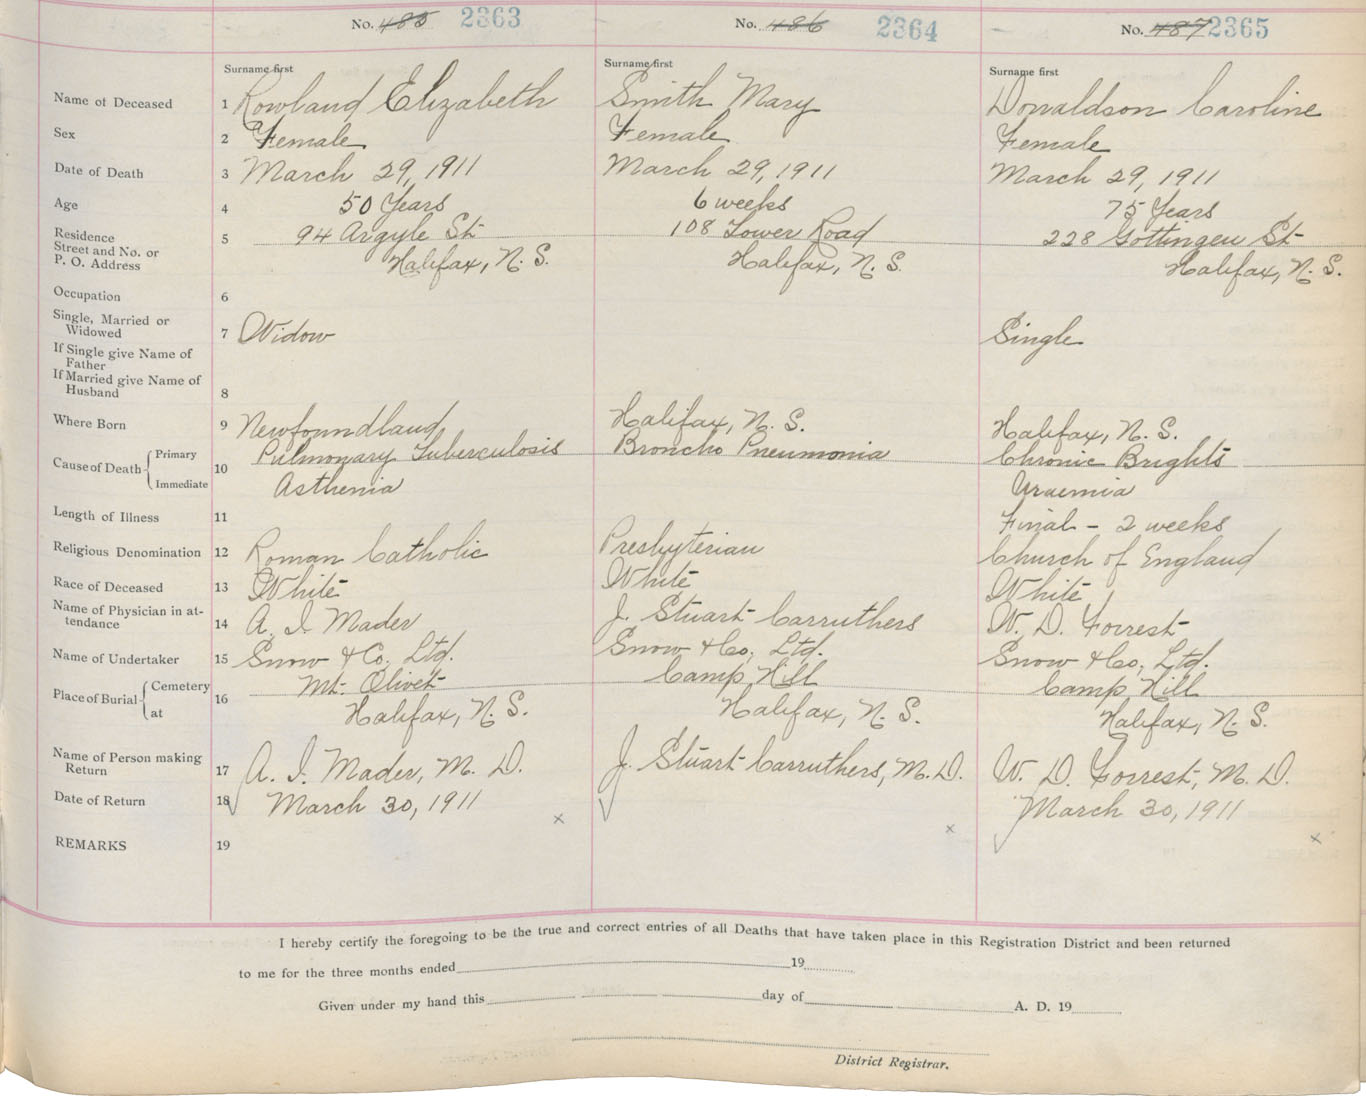 No. 485 2363 No. 486 2364 No. 487 2365
Surname first Surname first Surname first
Name of Deceased 1 Rowland Elizabeth Smith Mary Donaldson Caroline
Sex 2 Female Female Female
Date of Death 3 March 29, 1911 March 29, 1911 March 29, 1911
Age 4 50 Years 6 weeks 75 Years
Residence 5 94 Argyle St. 108 Tower Road 228 Gottingen St
Street and No. or
P. O. Address Halifax, N. S. Halifax, N. S. Halifax, N. S.
Occupation 6
Single, Married or
Widowed 7 Widow Single
If Single give Name of
Father
If Married give Name of
Husband 8
Where Born 9 Newfoundland Halifax, N. S. Halifax, N. S.
Cause of Death Primary 10 Pulmonary Tuberculosis Broncho Pneumonia Chronic Brights
Immediate Asthenia Uraemia
Length of Illness 11 Final - 2 weeks
Religious Denomination 12 Roman Catholic Presbyterian Church of England
Race of Deceased 13 White White White
Name of Physician in at-
tendance 14 A. I. Mader J. Stuart Carruthers W. D. Forrest
Name of Undertaker 15 Snow & Co. Ltd. Snow & Co, Ltd. Snow & Co, Ltd.
Place of Burial Cemetery 16 Mt. Olivet Camp Hill Camp Hill
at Halifax, N. S. Halifax, N. S. Halifax, N. S.
Name of Person making
Return 17 A. I. Mader, M. D. J. Stuart Carruthers, M. D. W. D. Forrest, M. D.
Date of Return 18 March 30, 1911 March 30, 1911
x x x
REMARKS 19
I hereby certify the foregoing to be the true and correct entries of all Deaths that have taken place in this Registration District and been returned
to me for the three months ended 19
Given under my hand this day of A. D. 19
District Registrar.